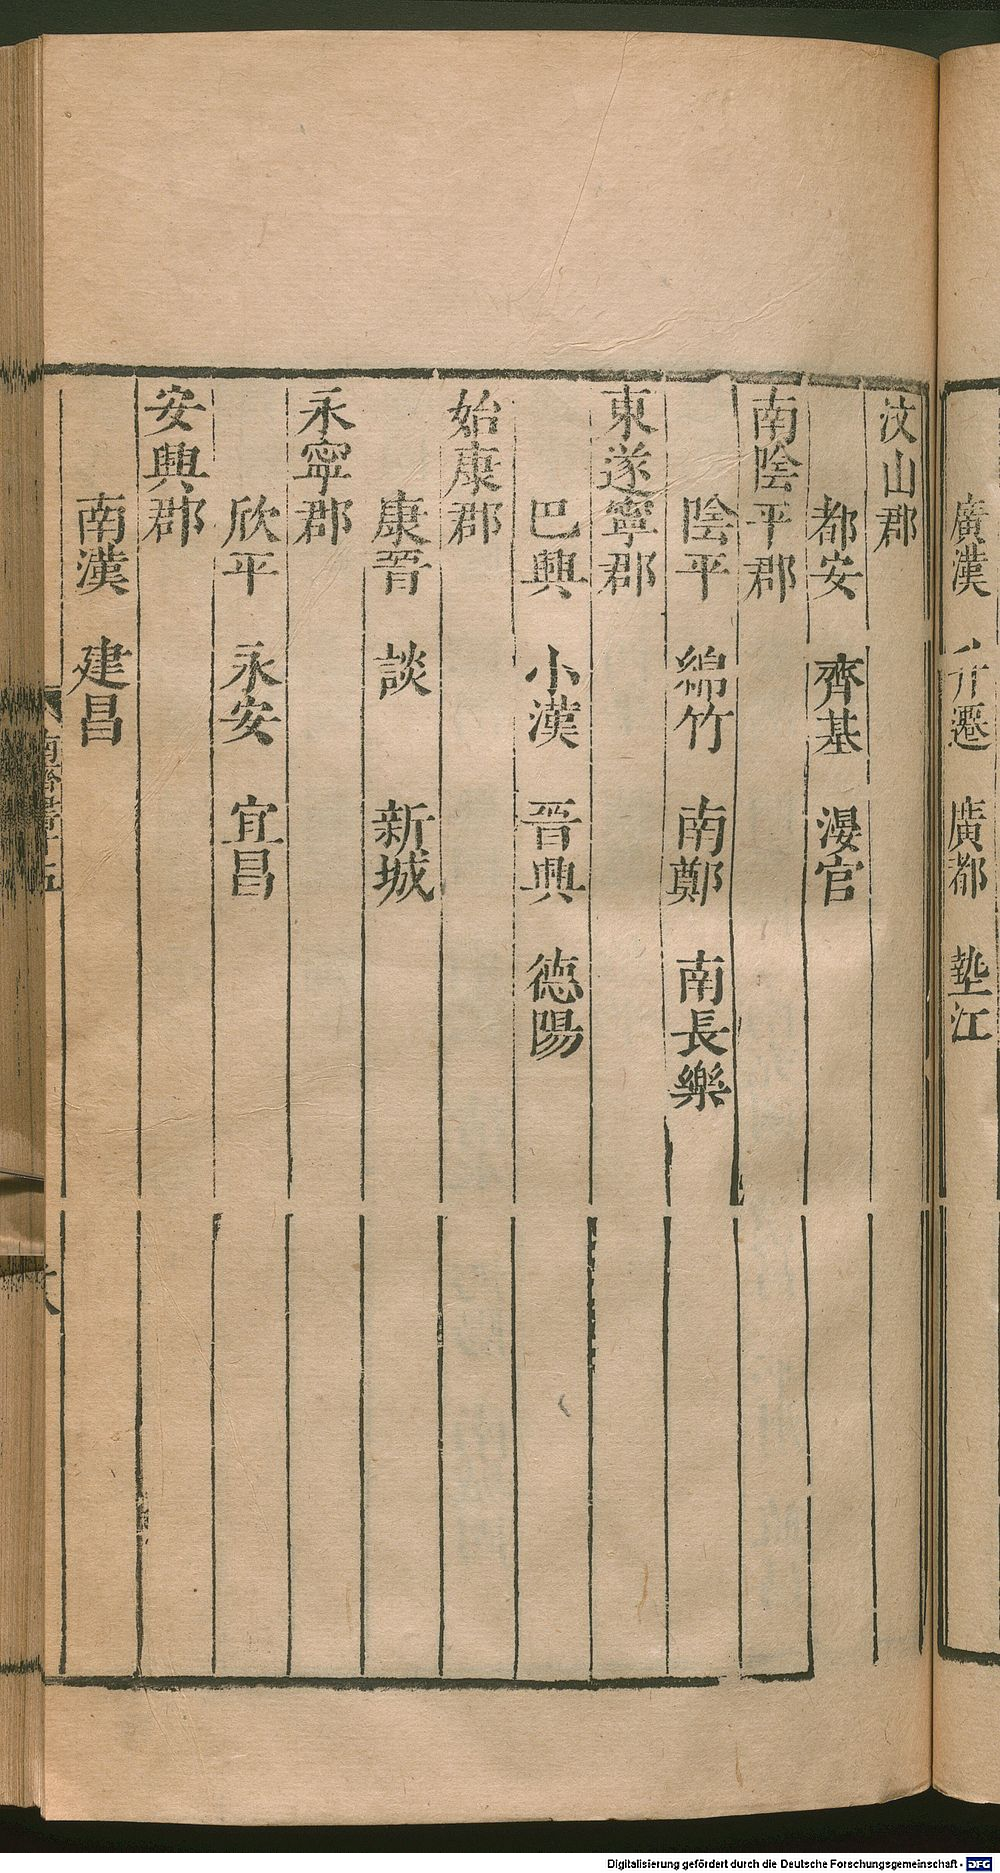 廣漢 升遷 廣都 墊江
汶山郡
都安 齊基 㵑官
南陰平郡
陰平 綿竹 南鄭 南長樂
東遂寧郡
巴興 小漢 晉興 德陽
始康郡
康晉 談 新城
永寧郡
欣平 永安 宜昌
安興郡
南漢 建昌
南齊書十五
Digitalisierung gefördert durch die Deutsche Forschungsgemeinschaft - DFG